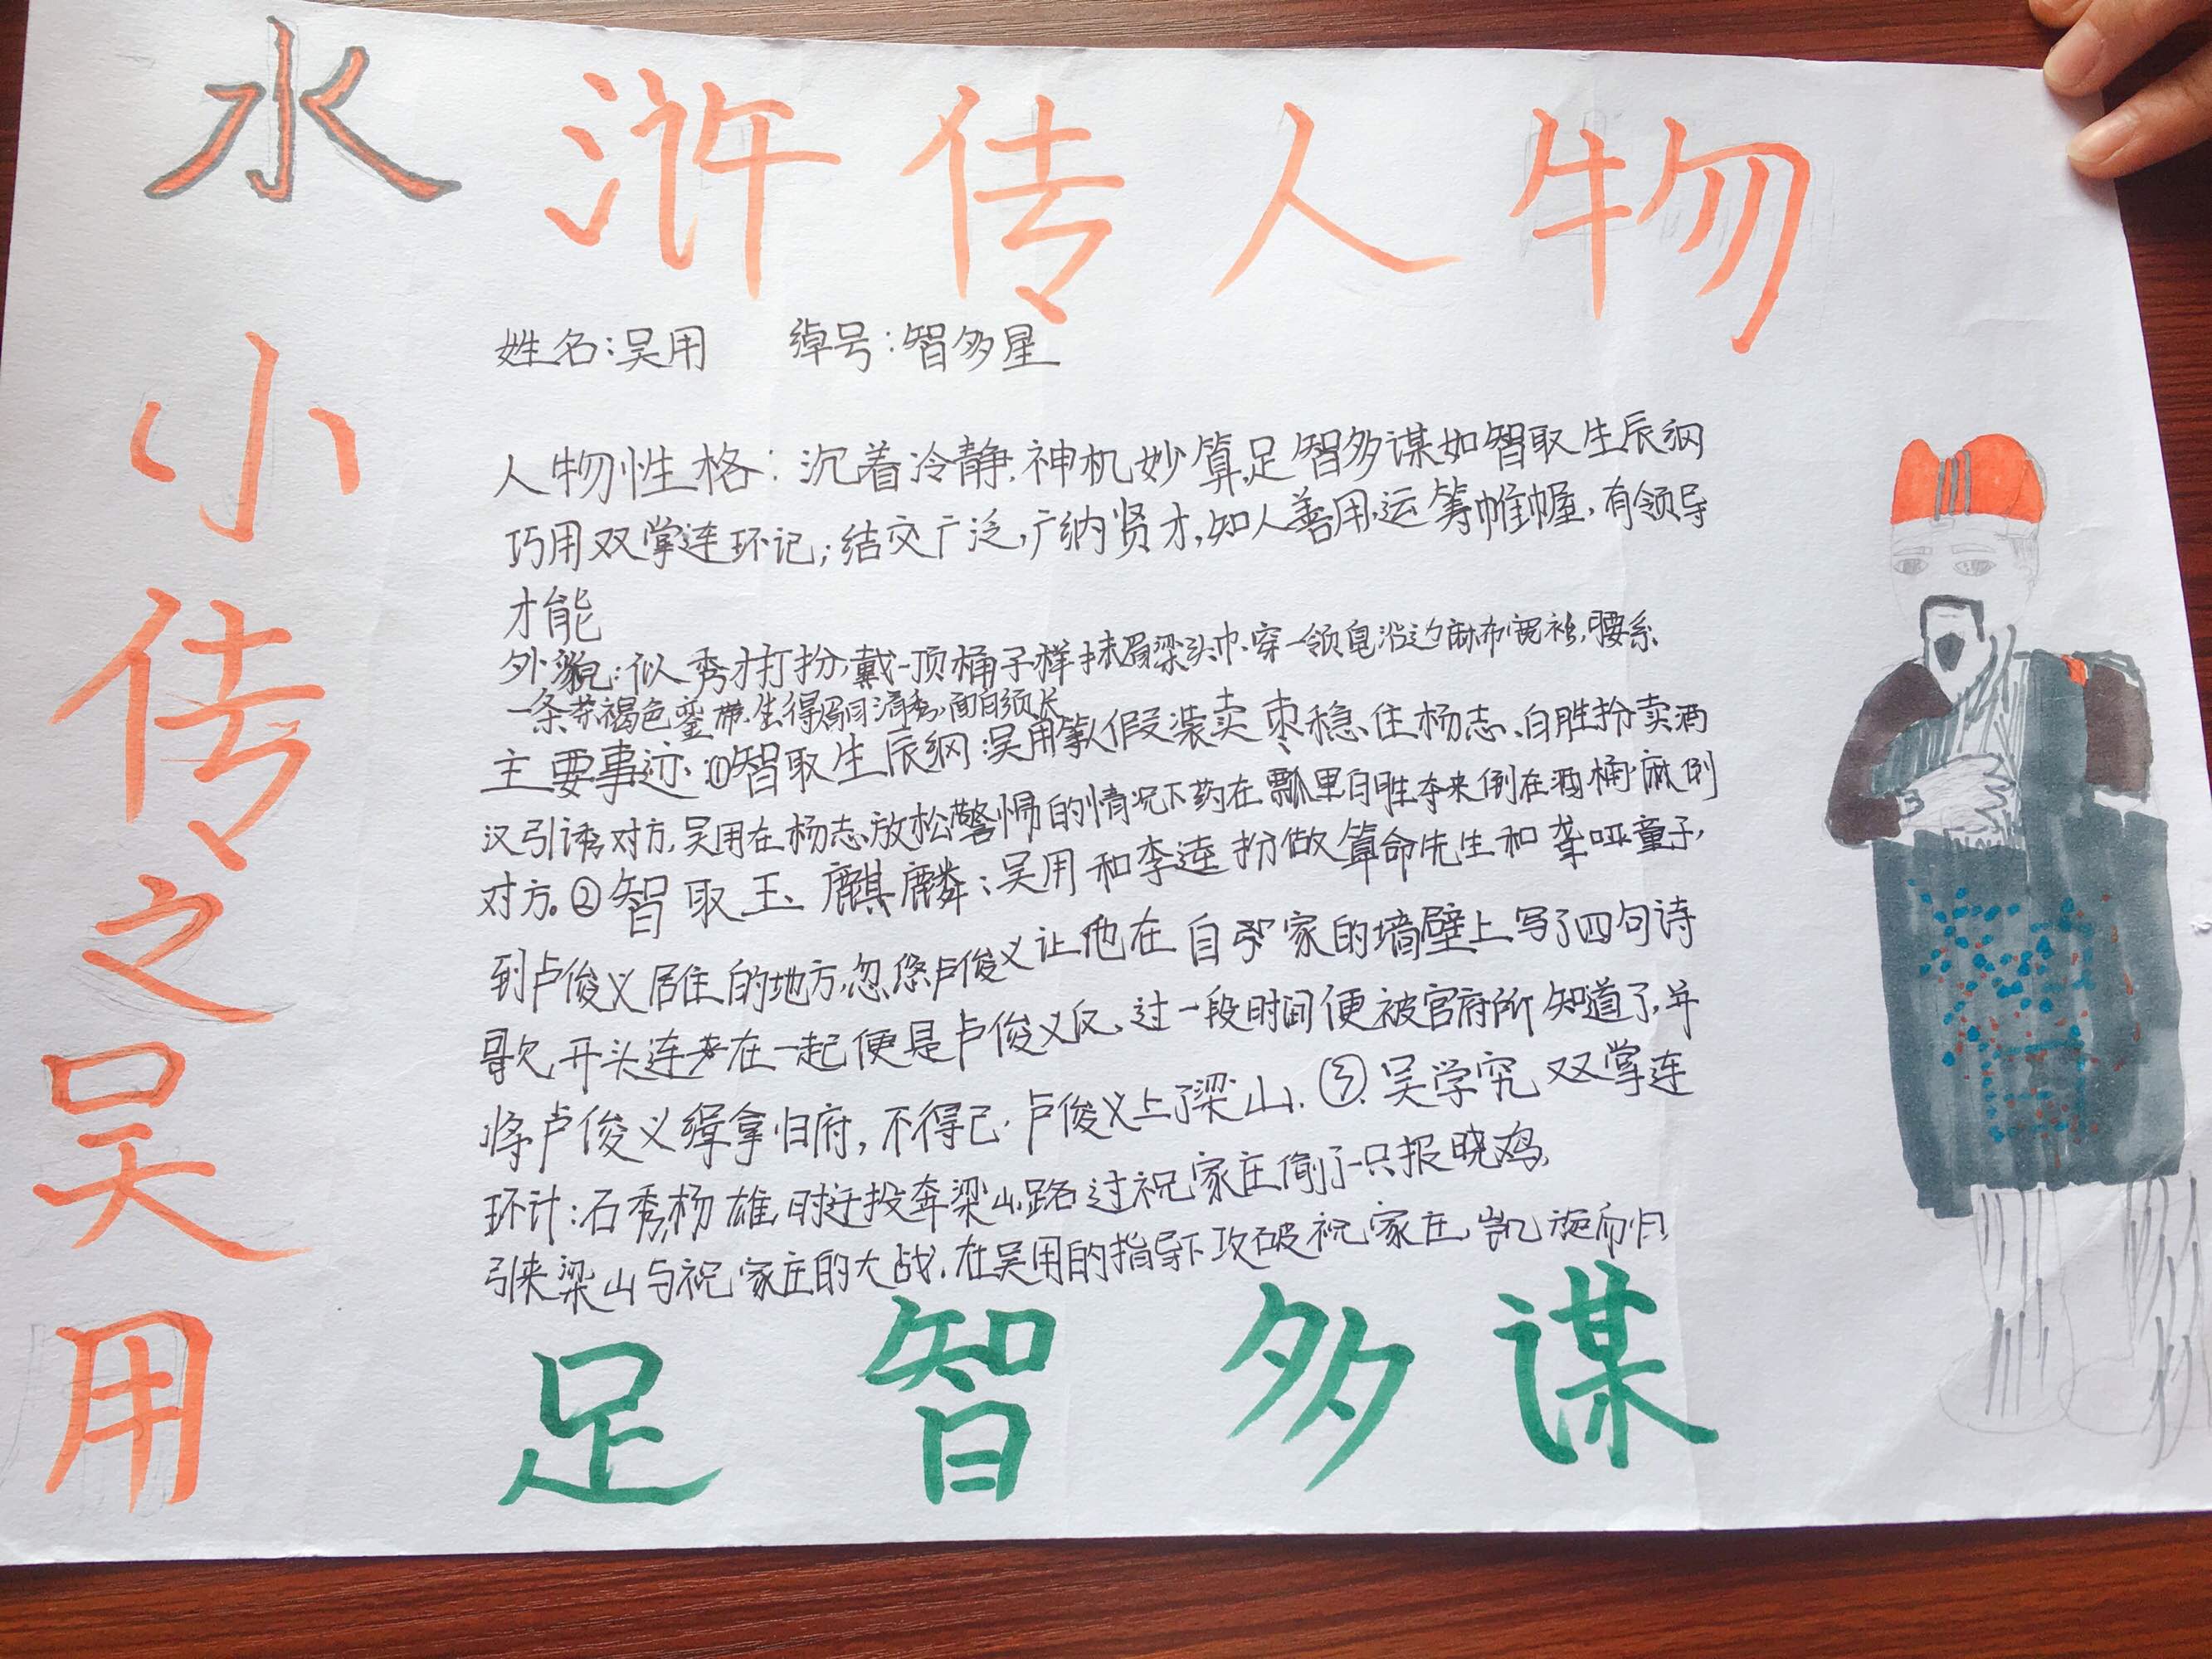 水浒传人物
小传之吴用
姓名:吴用 绰号:智多星
人物性格:沉着冷静.神机妙算,足智多谋如智取生辰纲
巧用双掌连环记;结交广泛,广纳贤才,知人善用,运筹帷幄,有领导
才能
外貌:似秀才打扮,戴一顶桶子样抹眉梁头巾.穿一领皂沿边麻布宽衫,腰系
一条茶褐色銮带.生得眉目清秀,面白须长
主要事迹:①智取生辰纲:吴用等人假装卖枣稳住杨志、白胜扮卖酒
汉引诱对方,吴用在杨志放松警惕的情况下药在瓢里白胜夺来倒在酒桶.麻倒
对方。②智取玉麒麟:吴用和李逵扮做算命先生和聋哑童子,
到卢俊义居住的地方,忽悠卢俊义让他在自家的墙壁上写了四句诗
歌,开头连在一起便是卢俊义反、过一段时间便被官府所知道了,并
将卢俊义缉拿归府,不得已.卢俊义上了梁山.③.吴学究双掌连
环计:石秀,杨雄,时迁投奔梁山,路过祝家庄偷了一只报晓鸡,
引来梁山与祝家庄的大战,在吴用的指导下攻破祝家庄,凯旋而归
足智多谋